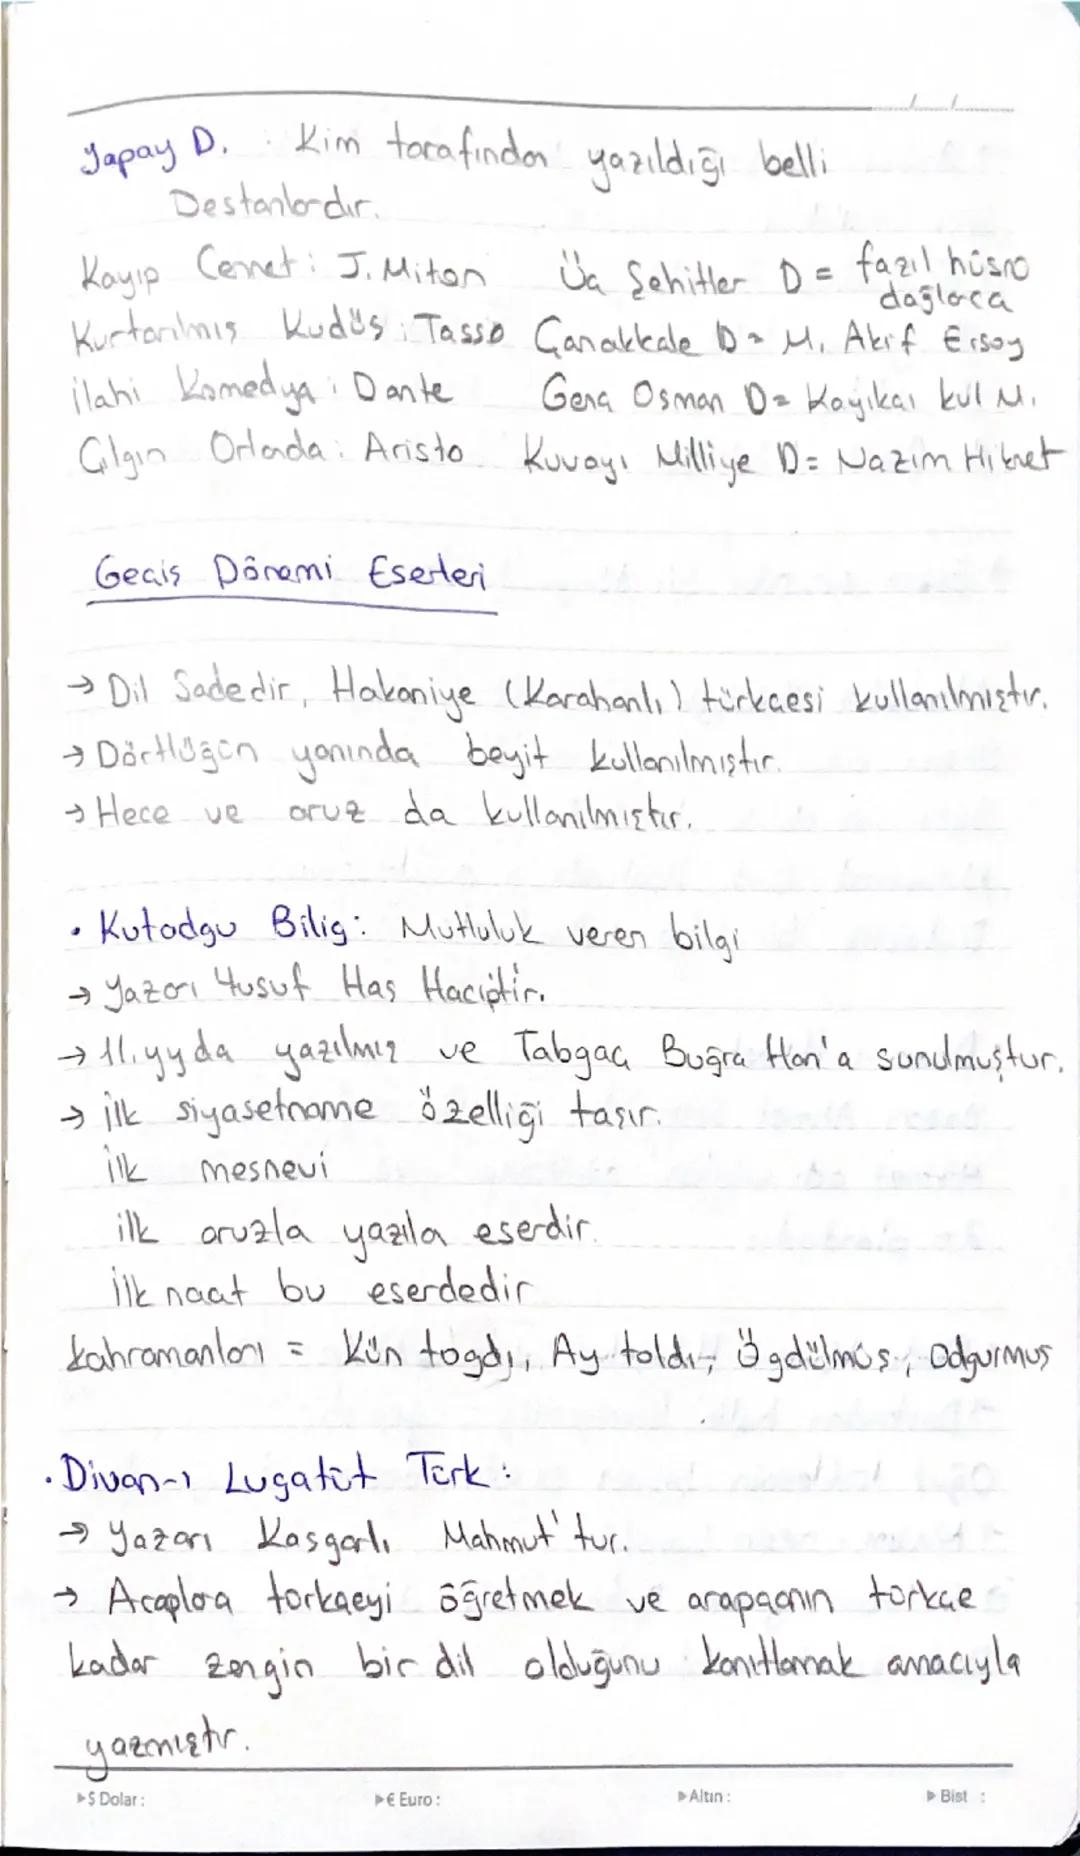 Yapay D. : Kim tarafından yazıldığı belli
Destanlardır.
Kayıp Cennet : J. Miton Üç Şehitler D = fazıl hüsnü dağlarca
Kurtarılmış Kudüs : Tasso Çanakkale D = M. Akif Ersoy
ilahi Komedya : Dante Genç Osman D = Kayıkçı kul M.
Çılgın Orlanda : Aristo Kuvayı Milliye D = Nazım Hikmet
Geçiş Dönemi Eserleri
→ Dil Sadedir, Hakaniye (Karahanlı) türkçesi kullanılmıştır.
→ Dörtlüğün yanında beyit kullanılmıştır.
→ Hece ve aruz da kullanılmıştır.
• Kutadgu Bilig : Mutluluk veren bilgi
→ Yazarı Yusuf Has Haciptir.
→ 11.yy da yazılmış ve Tabgaç Buğra Han'a sunulmuştur.
→ ilk siyasetname özelliği taşır.
ilk mesnevi
ilk aruzla yazıla eserdir.
ilk naat bu eserdedir
kahramanları = Kün togdı, Ay toldı, Ögdülmüş, Odgurmuş
• Divan-ı Lugatüt Türk :
→ Yazarı Kasgarlı Mahmut'tur.
→ Araplara türkçeyi öğretmek ve arapçanın türkçe
kadar zengin bir dil olduğunu kanıtlamak amacıyla
yazmıştır.
$ Dolar : € Euro : Altın : Bist :